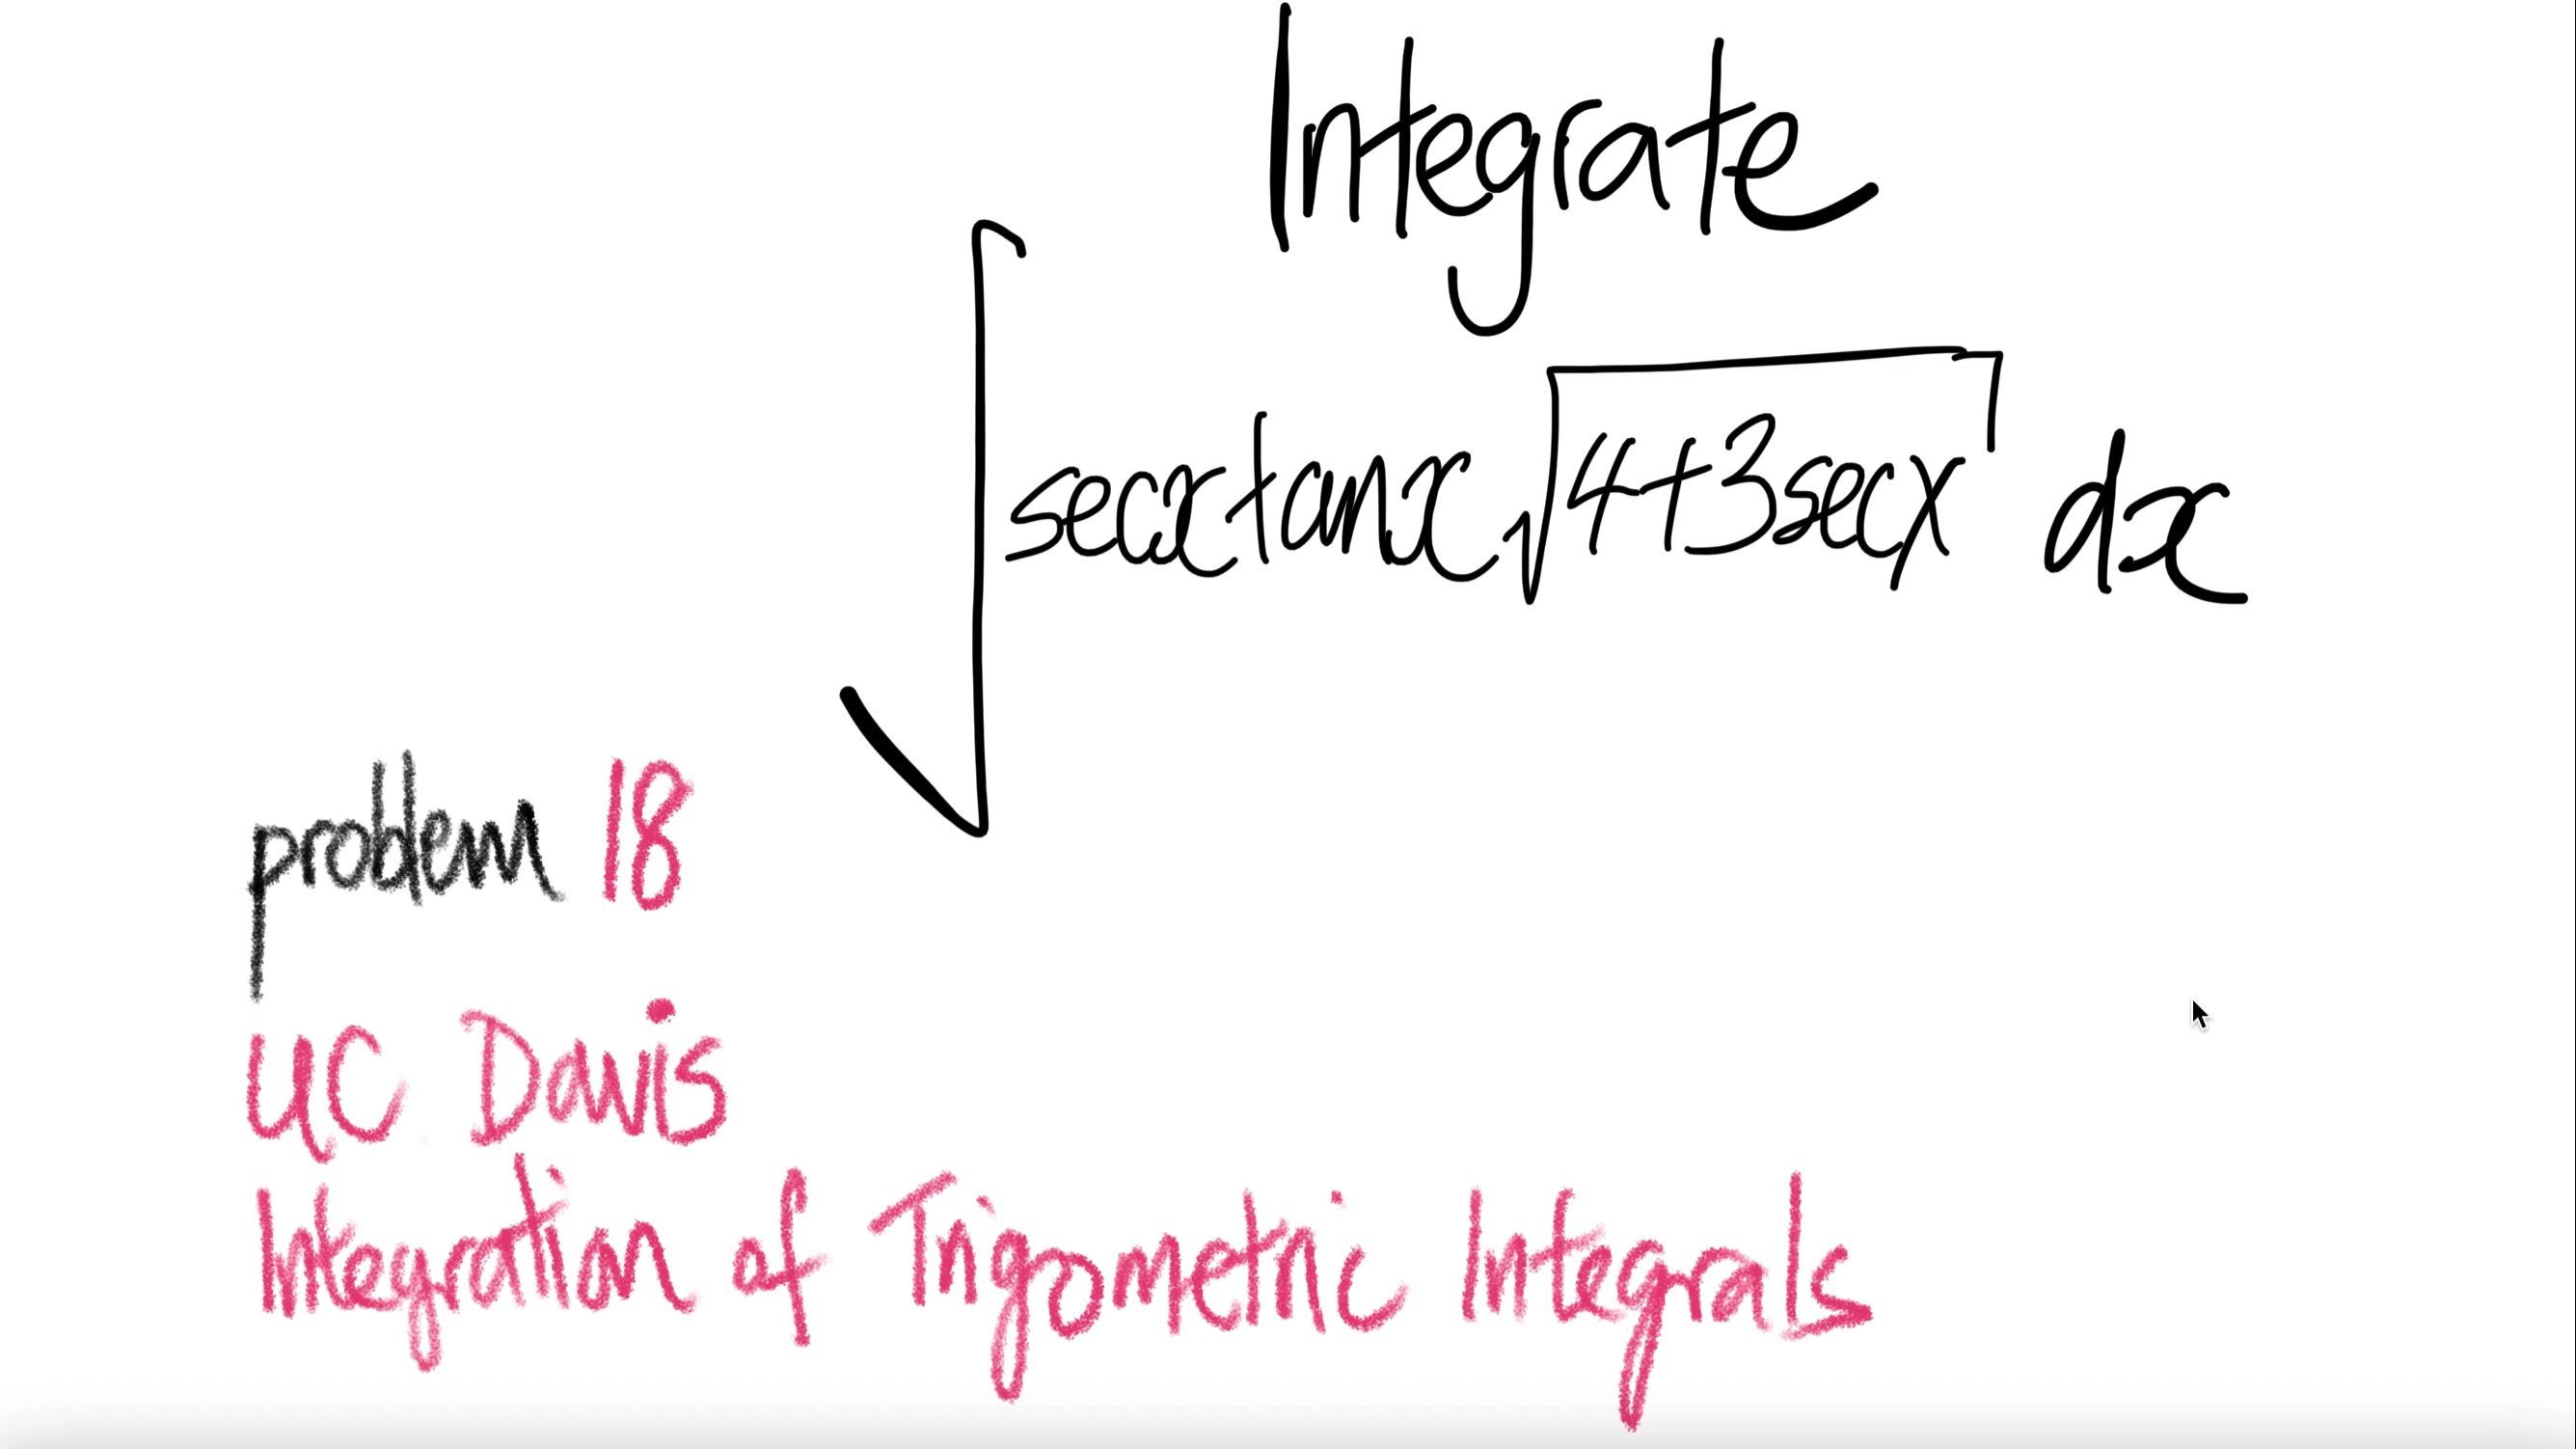 Integrate
∫ secxtanx √4+3secx dx
problem 18
UC Davis
Integration of Trigometric Integrals